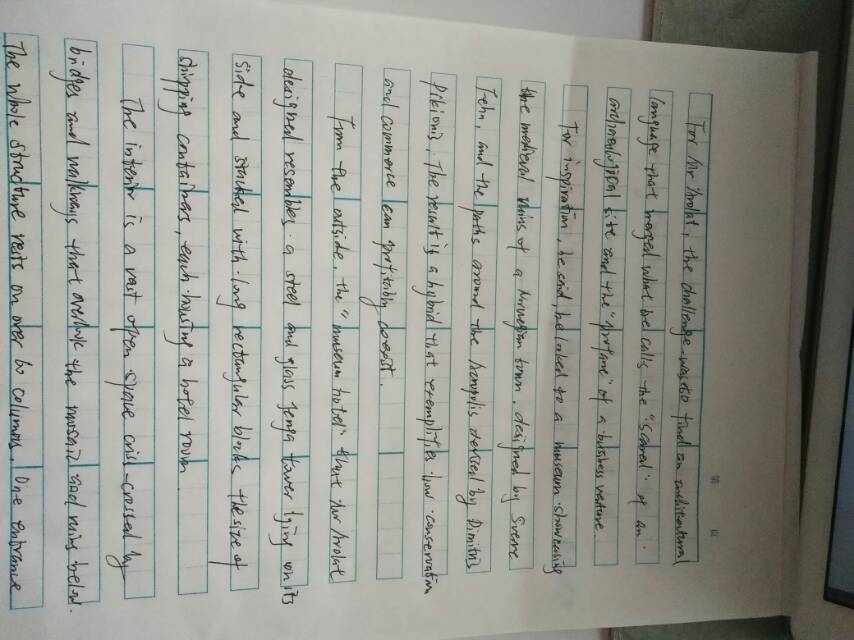 For Mr Arolat, the challenge was to find an architectural
language that merged what he calls the "scared" of an
archaeological site and the "profane" of a business venture.
For inspiration, he said, he looked to a museum showcasing
the medieval ruins of a Norwegian town, designed by Sverre
Fehn, and the paths around the Acropolis devised by Dimitris
Pikionis. The result is a hybrid that exemplifies how conservation
and commerce can profitably coexist.
From the outside, the "museum hotel" that Mr Arolat
designed resembles a steel and glass Jenga tower lying on its
side and stacked with long rectangular blocks the size of
shipping containers, each housing a hotel room.
The interior is a vast open space cris-crossed by
bridges and walkways that overlook the mosaic and ruins below.
The whole structure rests on over 60 columns. One entrance